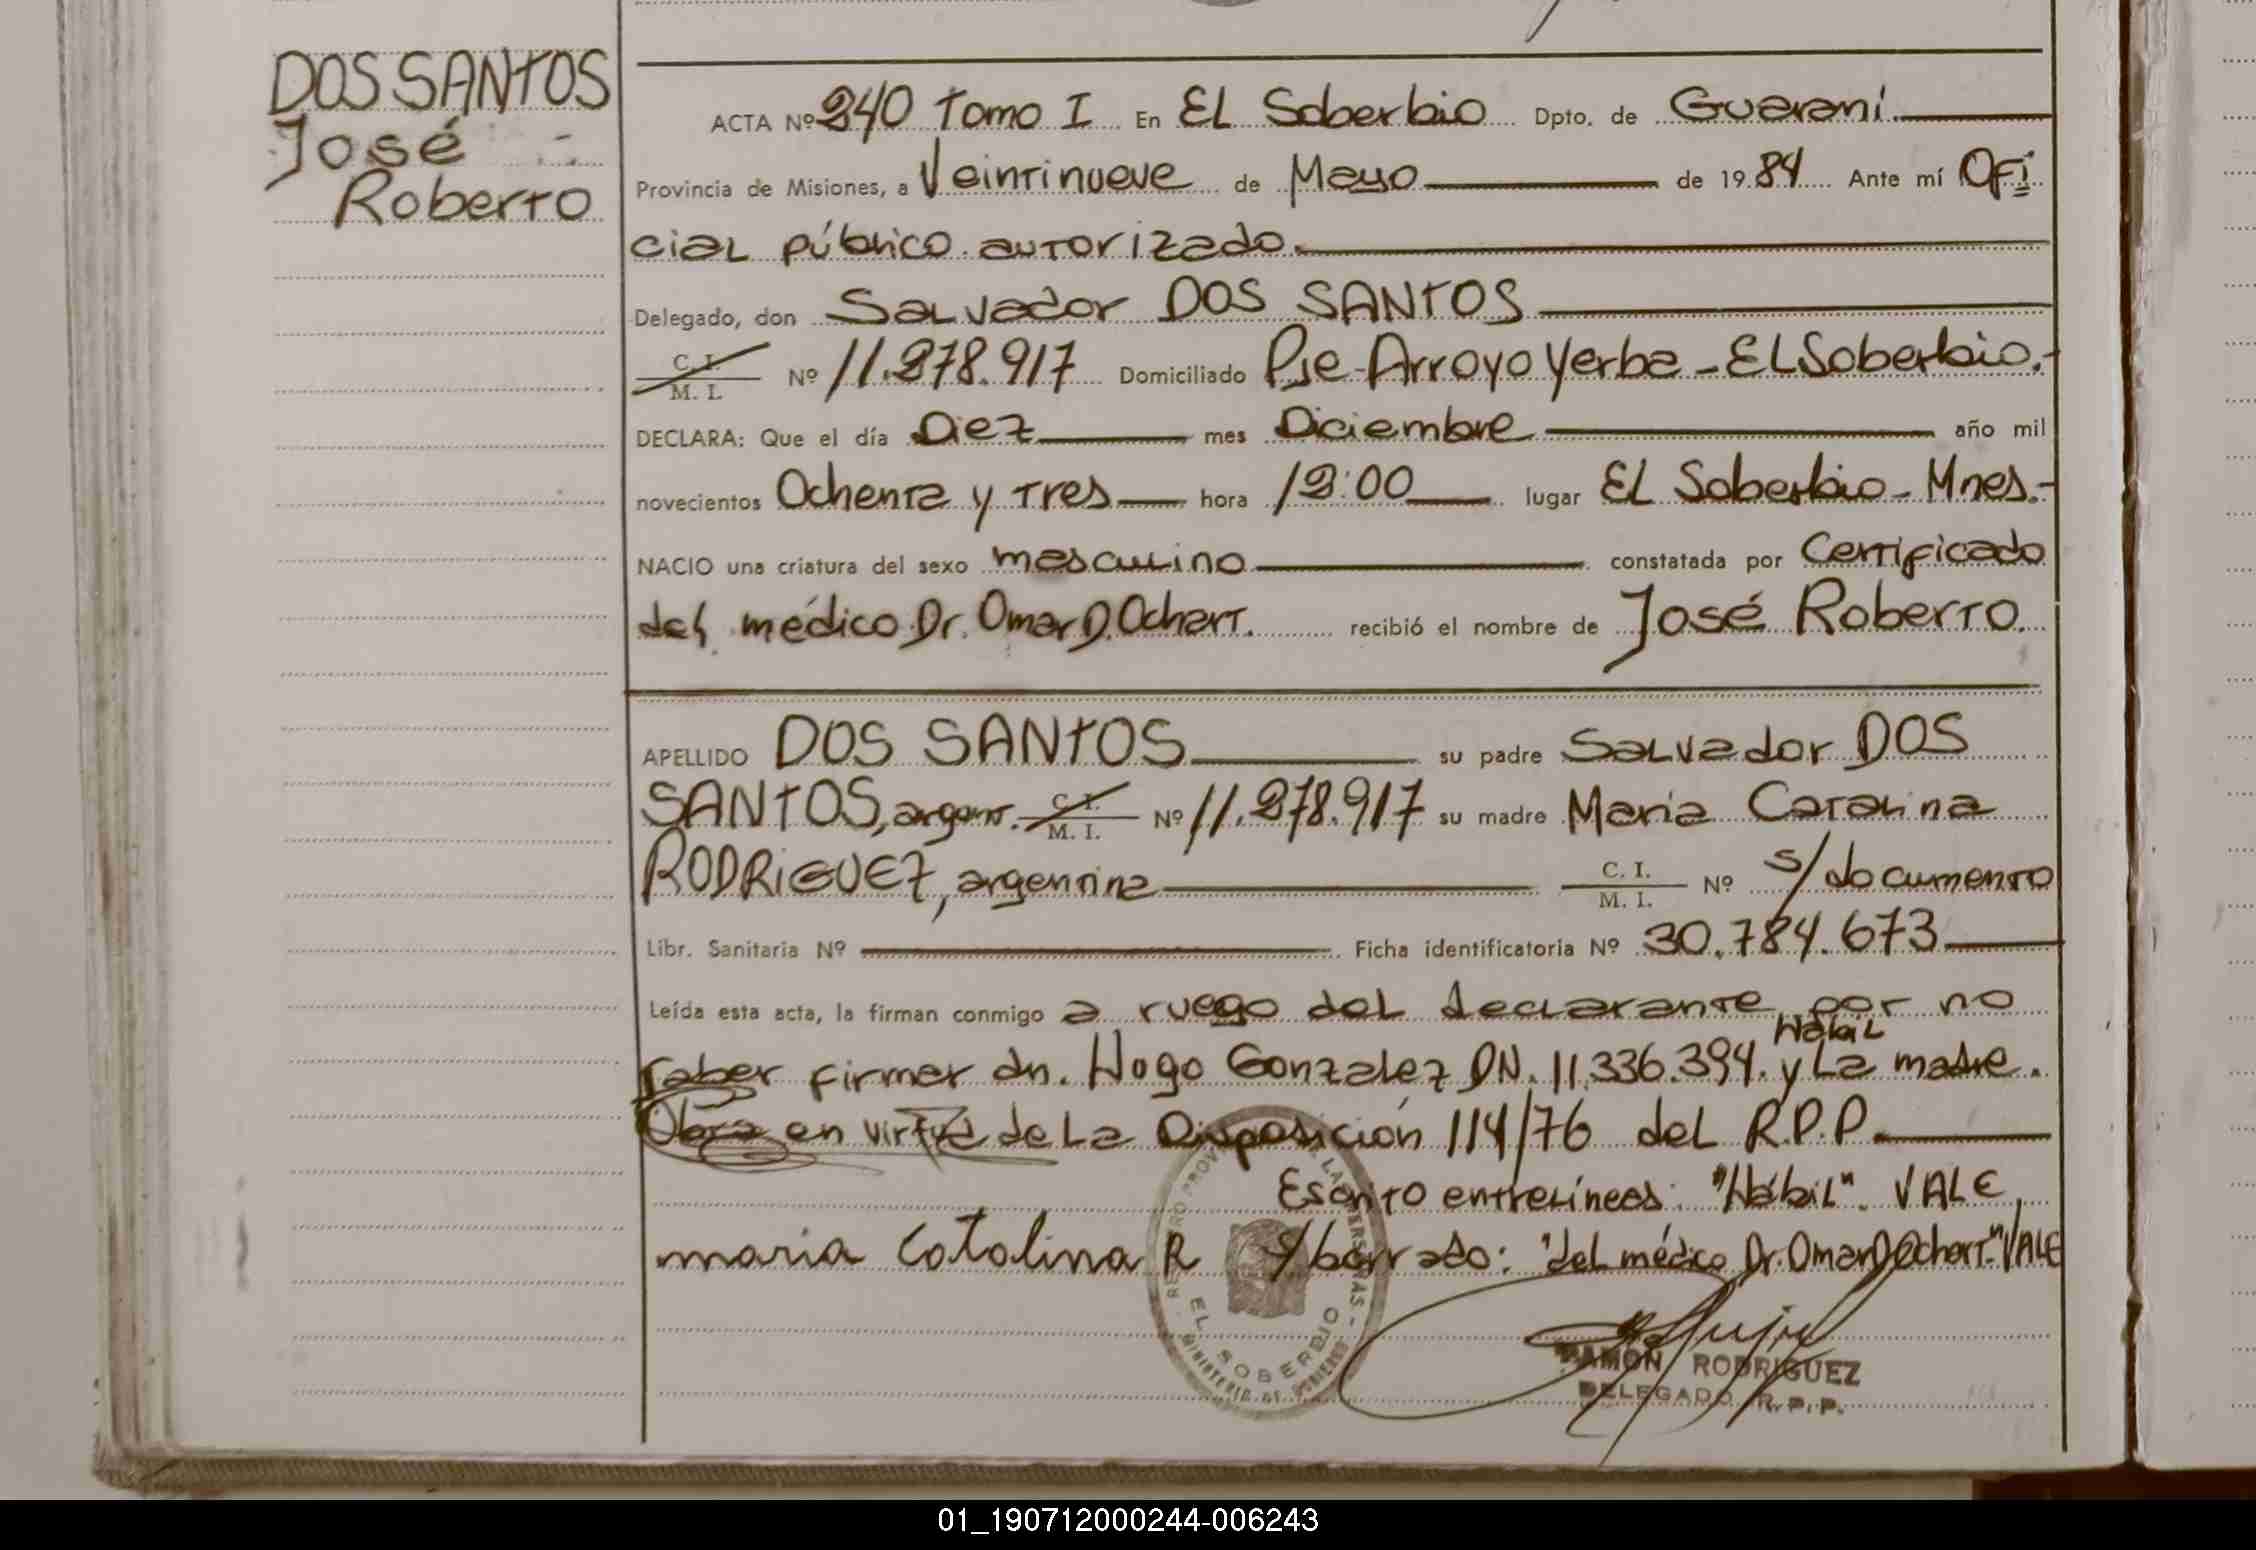 DOS SANTOS
José
Roberto
ACTA Nº 240 Tomo I En EL Soberbio Dpto. de Guaraní
Provincia de Misiones, a Veintinueve de Mayo de 1984 Ante mí Ofi
cial público autorizado.
Delegado, don Salvador DOS SANTOS
C. I. M. I. Nº 11.278.917 Domiciliado Pje-Arroyo Yerba - EL Soberbio.-
DECLARA: Que el día Diez mes Diciembre año mil
novecientos Ochenta y Tres hora 12:00 lugar EL Soberbio - Mnes.-
NACIO una criatura del sexo masculino constatada por Certificado
del médico Dr. Omar D. Ochart. recibió el nombre de José Roberto.
APELLIDO DOS SANTOS su padre Salvador DOS
SANTOS, argent. C. I. M. I. Nº 11.278.917 su madre Maria Catalina
RODRIGUEZ, argentina C. I. M. I. Nº s/documento
Libr. Sanitaria Nº Ficha identificatoria Nº 30.784.673
Leída esta acta, la firman conmigo a ruego del declarante por no
Hábil
saber firmar dn. Hugo Gonzalez DN. 11.336.394. y La madre.
Obra en virtud de La Disposición 114/76 del R.P.P.
Escrito entrelíneas: "Hábil". VALE.
maria Catalina R S/borrado: "del médico Dr. Omar D Ochart." VALE
EL SOBERBIO
RAMON RODRIGUEZ
DELEGADO R.P.P.
01_190712000244-006243